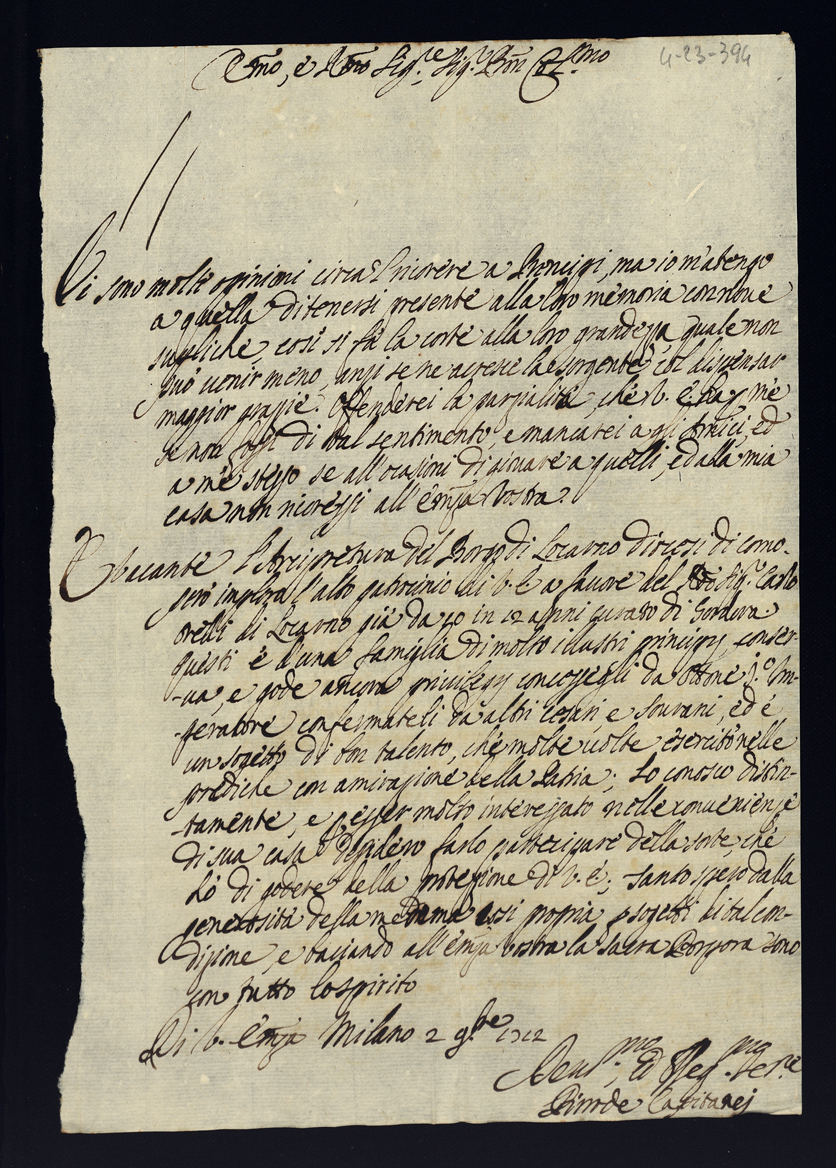 Emo, e Rmo Sig.re Sig.r Pron Col.mo
4-23-394
Vi sono molte opinioni circa l ricorere a Prencipi, ma io m'atengo
a quella di tenersi presente alla loro memoria con nove
supliche, così si fà la corte alla loro grandezza, quale non
può venir meno, anzi se ne acresce la sorgente col dispensar
maggior grazie. Offenderei la parzialità, che V. E. ha p me
se non fossi di tal sentimento, e mancarei a gli Amici, ed
a me stesso se all'ocasioni di giovare a quelli, ed alla mia
casa non ricoressi all'Emza Vostra.
È vacante l'Arcipretura del Borgo di Locarno diocesi di Como
però imploro l'alto patrocinio di V. E. a favore del Sig.r Carlo
Orelli di Locarno già da 10 in 12 anni curato di Gordola.
questi è d'una famiglia di molto illustri principij, conser-
-va, e gode ancora privilegij concessegli da Ottone p.o Im-
-peratore confermateli da altri Cesari e Sovrani, ed è
un sogetto di bon talento, che molte volte esercitò nelle
prediche con amirazione della Patria; Lo conosco distin-
-tamente, e p esser molto interessato nelle convenienze
di sua casa desidero farlo partecipare della sorte, che
hò di godere della protezione di V. E.; tanto spero dalla
generosità della medema così propria p sogetti di tal con-
dizione, e baciando all'Emza Vostra la Sacra Porpora sono
con tutto lo spirito
Di V. Emza Milano 2 9bre 1712
Deu.mo, ed Obleg.mo Ser.re
Capitanej